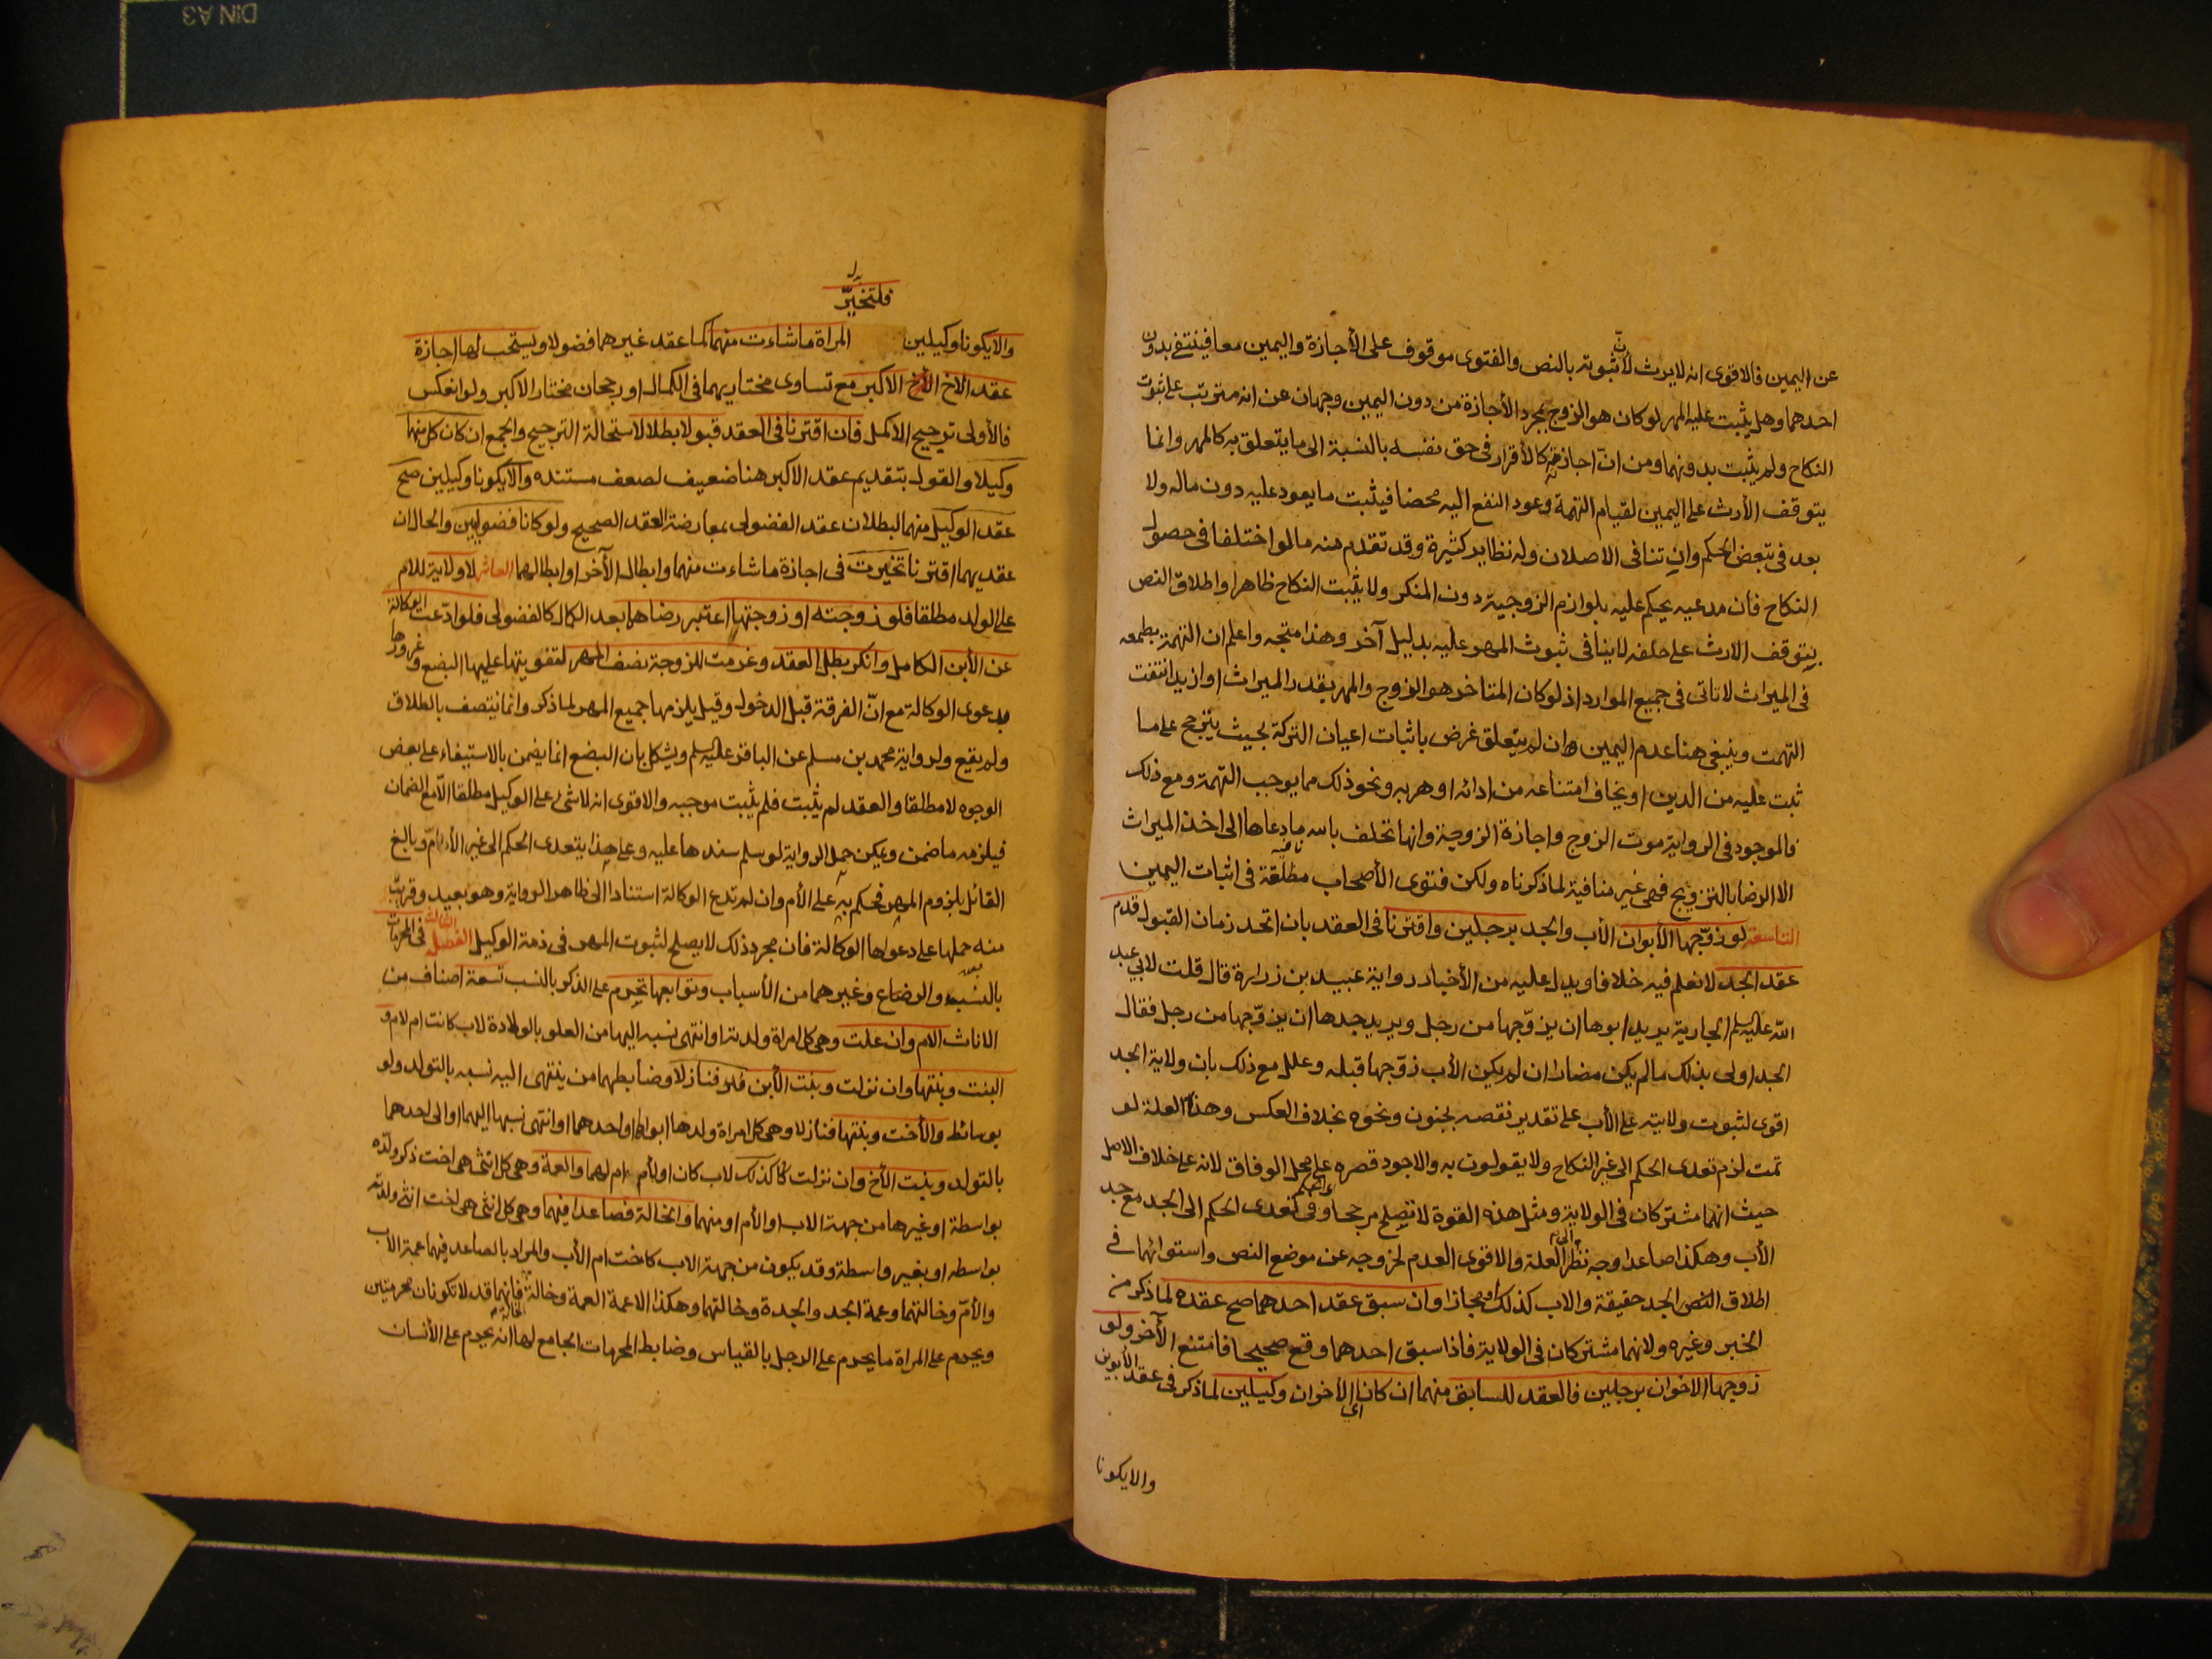 عن اليمين فالاقوى انه لا يرث لان ثبوته بالنص والفتوى موقوف على الأجازة واليمين معا فينتفى بدون
احدهما وهل يثبت عليه المهر لو كان هو الزوج بمجرد الأجازة من دون اليمين وجهان عن انه مترتب على ثبوت
النكاح ولم يثبت بدونهما ومن انّ اجازته كالأقرار فى حق نفسه بالنسبة الى ما يتعلق به كالمهر وانما
يتوقف الأرث على اليمين لقيام التهمة وعود النفع اليه محضا فيثبت ما يعود عليه دون ماله ولا
بعد فى تبعض الحكم وان تنافى الاصلان وله نظاير كثيرة وقد تقدم منه ما لو اختلفا فى حصول
النكاح فان مدعيه يحكم عليه بلوازم الزوجية دون المنكر ولا يثبت النكاح ظاهرا واطلاق النص
بتوقف الارث على حلفه لا ينافى ثبوت المهر عليه بدليل آخر وهذا متجه واعلم ان التهمة بطمعه
فى الميراث لا تاتى فى جميع الموارد اذ لو كان المتاخر هو الزوج والمهر بقدر الميراث او ازيد انتفت
التهمت وينبغى هنا عدم اليمين وان لم يتعلق غرض باثبات اعيان التركة بحيث يترجح على ما
ثبت عليه من الدين او يخاف امتناعه من ادائه او هربه ونحو ذلك مما يوجب التهمة ومع ذلك
فالموجود فى الرواية موت الزوج واجازة الزوجة وانها تحلف بالله ما دعاها الى اخذ الميراث
الا الرضا بالتزويج فهى غير منافية لما ذكرناه ولكن فتوى الأصحاب مطلقة فى اثبات اليمين
التاسعة لو زوّجها الأبوان الأب والجد برجلين واقترنا فى العقد بان اتحد زمان القبول قدم
عقد الجد لا نعلم فيه خلافا ويدل عليه من الأخبار رواية عبيد بن زرارة قال قلت لابي عبد
الله عليه السلم الجارية يريد ابوها ان يزوّجها من رجل ويريد جدها ان يزوّجها من رجل فقال
الجد اولى بذلك ما لم يكن مضارا ان لم يكن الأب زوّجها قبله وعلل مع ذلك بان ولاية الجد
اقوى لثبوت ولايته على الأب على تقدير نقصه بجنون ونحوه بخلاف العكس وهذه العلة لو
تمت لزم تعدى الحكم الى غير النكاح ولا يقولون به والاجود قصره على محل الوفاق لانه على خلاف الاصل
حيث انهما مشتركان فى الولاية ومثل هذه القوة لا تصلح مرجحا وفى تعدى الحكم الى الجد مع جد
الأب وهكذا صاعدا وجه نظرا الى العلة والاقوى العدم لخروجه عن موضع النص واستوائهما فى
اطلاق النص الجد حقيقة والاب كذلك او مجازا وان سبق عقد احدهما صح عقده لما ذكر من
الخبر وغيره ولانهما مشتركان فى الولاية فاذا سبق احدهما وقع صحيحا فامتنع الآخر ولو
زوجها الاخوان برجلين فالعقد للسابق منهما ان كانا اي الأخوان وكيلين لما ذكر فى عقد الأبوين
والا يكونا
فلتتخيّر
بدل
والا يكونا وكيلين المراة ما شاءت منهما كما عقد غيرهما فضولا ويستحب لها اجازة
عقد الاخ الأكبر مع تساوى مختاريهما فى الكمال او رجحان مختار الاكبر ولو انعكس
فالأولى ترجيح الاكمل فان اقترنا فى العقد قبولا بطلا لاستحالة الترجيح والجمع ان كان كل منهما
وكيلا والقول بتقديم عقد الاكبر هنا ضعيف لضعف مستنده والا يكونا وكيلين صح
عقد الوكيل منهما لبطلان عقد الفضولى بمعارضة العقد الصحيح ولو كانا فضوليين والحال ان
عقديهما اقترنا تخيرت فى اجازة ما شاءت منهما وابطال الآخر او ابطالهما العاشرة لا ولاية للام
على الولد مطلقا فلو زوجته او زوجتها اعتبر رضاهما بعد الكمال كالفضولى فلو ادّعت الوكالة
عن الأبن الكامل وانكر بطل العقد وغرمت للزوجة نصف المهر لتفويتها عليها البضع وغرورها
بدعوى الوكالة مع انّ الفرقة قبل الدخول وقيل يلزمها جميع المهر لما ذكر وانما ينتصف بالطلاق
ولم يقع ولرواية محمد بن مسلم عن الباقر عليه السلم ويشكل بان البضع انما يضمن بالاستيفاء على بعض
الوجوه لا مطلقا والعقد لم يثبت فلم يثبت موجبه والاقوى انه لا شئ على الوكيل مطلقا الّا مع الضمان
فيلزمه ما ضمن ويمكن حمل الرواية لو سلم سندها عليه وعلى هذا يتعدى الحكم الى غير الأم وبالغ
القائل بلزوم المهر فحكم به على الأم وان لم تدع الوكالة استنادا الى ظاهر الرواية وهو بعيد وقريب
منه حملها على دعواها الوكالة فان مجرد ذلك لا يصلح لثبوت المهر فى ذمة الوكيل الفصل الثالث فى المحرمات
بالنسب والرضاع وغيرهما من الأسباب وتوابعها تحرم على الذكر بالنسب تسعة اصناف من
الاناث الام وان علت وهى كل امراة ولدته او انتهى نسبه اليها من العلو بالولادة لاب كانت ام لام و
البنت وبنتها وان نزلت وبنت الأبن فنازلا وضابطهما من ينتهى اليه نسبه بالتولد ولو
بوسائط والأخت وبنتها فنازلا وهى كل امراة ولدها ابواه او احدهما او انتهى نسبها اليهما او الى احدهما
بالتولد وبنت الأخ وان نزلت كذلك لاب كان او لأم ام لهما والعمة وهى كل انثى هى اخت ذكر ولده
بواسطة او غيرها من جهة الاب او الأم او منهما والخالة فصاعدا فيهما وهى كل انثى هى اخت انثى ولدته
بواسطه او بغير واسطة وقد يكون من جهة الاب كاخت ام الأب والمراد بالصاعد فيهما عمة الأب
والأمّ وخالتهما وعمة الجد والجدة وخالتهما وهكذا لا عمة العمة وخالة الخالة فانهما قد لا تكونان محرمتين
ويحرم على المراة ما يحرم على الرجل بالقياس وضابط المحرمات الجامع لها انه يحرم على الأنسان